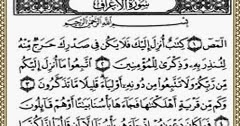 سُورَةُ الأَعْرَافِ
بِسْمِ اللَّهِ الرَّحْمَٰنِ الرَّحِيمِ
الٓمٓصٓ ١ كِتَٰبٌ أُنزِلَ إِلَيْكَ فَلَا يَكُن فِى صَدْرِكَ حَرَجٌ مِّنْهُ
لِتُنذِرَ بِهِۦ وَذِكْرَىٰ لِلْمُؤْمِنِينَ ٢ ٱتَّبِعُوا۟ مَآ أُنزِلَ إِلَيْكُم
مِّن رَّبِّكُمْ وَلَا تَتَّبِعُوا۟ مِن دُونِهِۦٓ أَوْلِيَآءَ قَلِيلًا مَّا تَذَكَّرُونَ ٣
وَكَم مِّن قَرْيَةٍ أَهْلَكْنَٰهَا فَجَآءَهَا بَأْسُنَا بَيَٰتًا أَوْ هُمْ قَآئِلُونَ